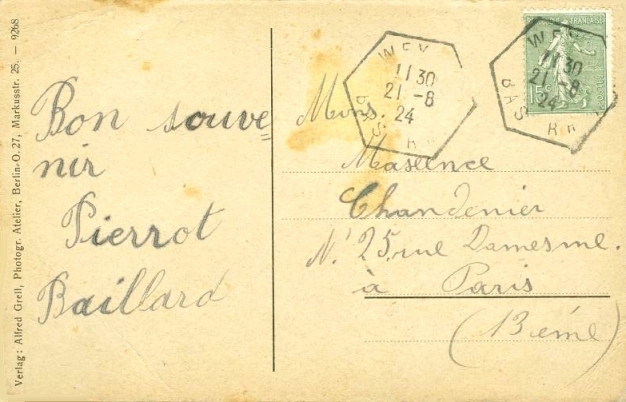 Verlag: Alfred Grell, Photogr. Atelier, Berlin-O. 27, Markusstr. 25. — 9268
Bon souve=
nir
Pierrot
Baillard
WEY
11 30
21 -8
24
BAS R
WEY
11 30
21 -8
24
BAS RH
FRANÇAISE
15c
Mons.
Maxence
Chandenier
N° 25, rue Damesme.
à Paris
(13ème)